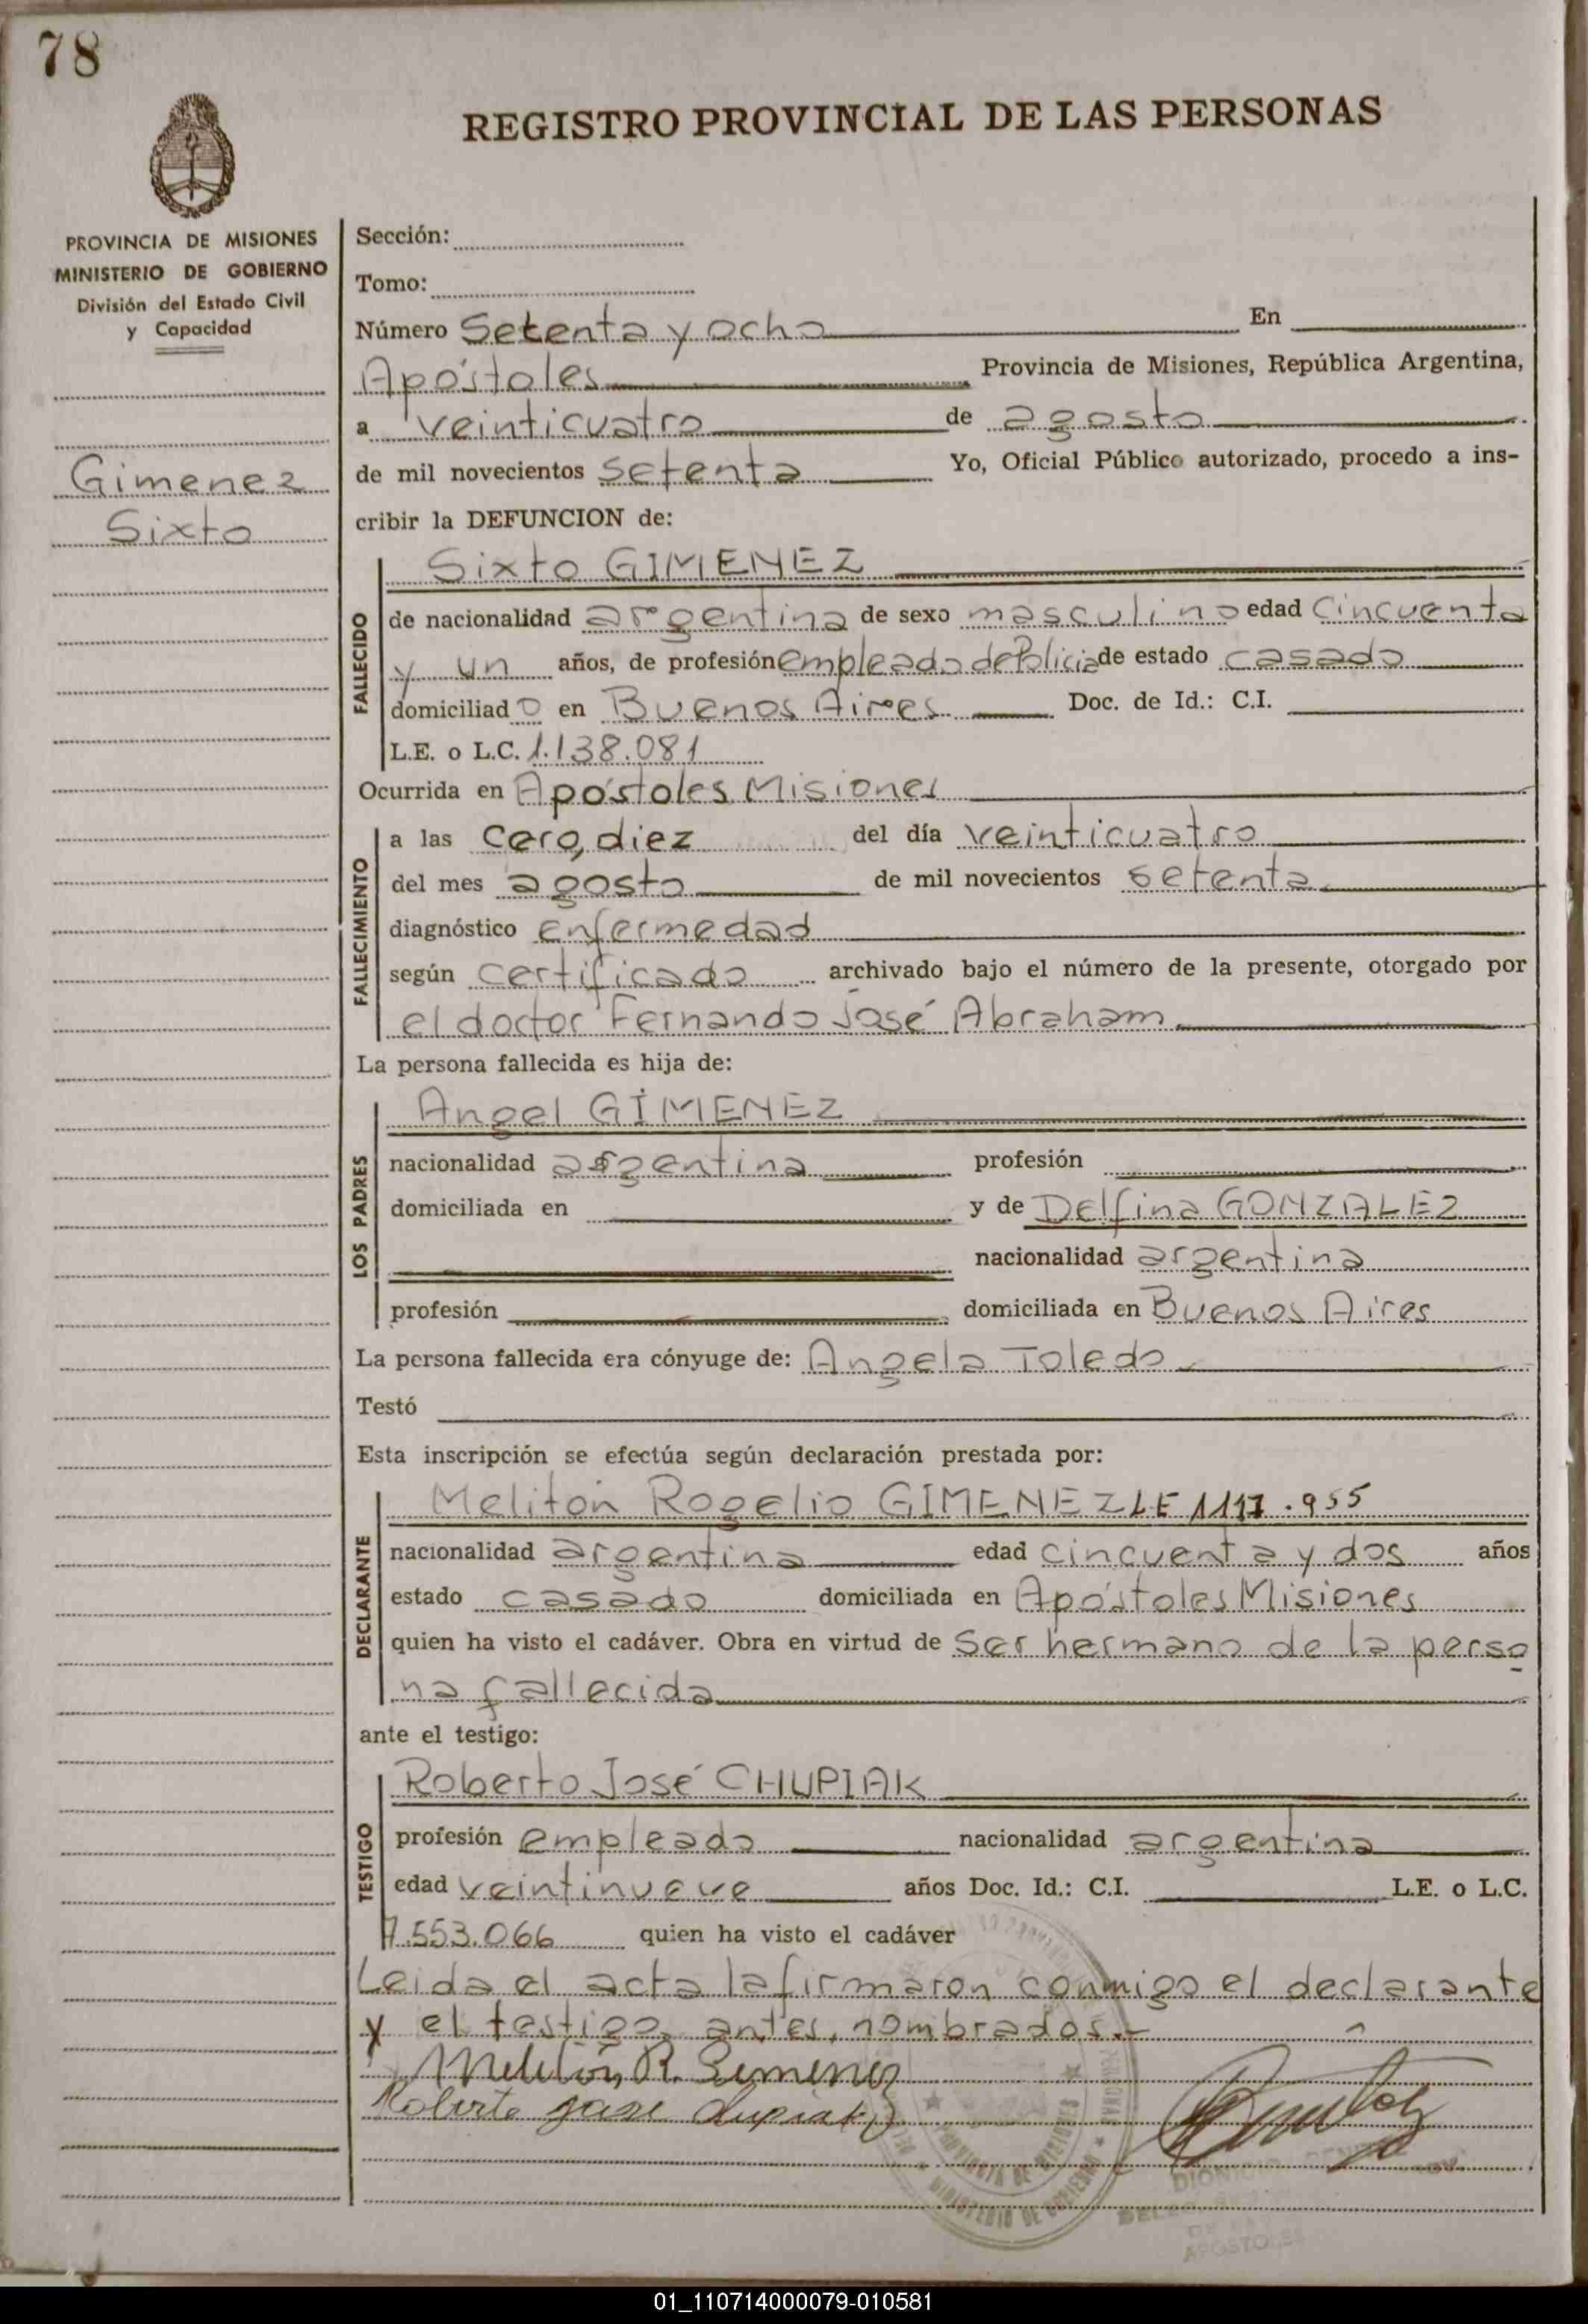 78
REGISTRO PROVINCIAL DE LAS PERSONAS
PROVINCIA DE MISIONES
MINISTERIO DE GOBIERNO
División del Estado Civil
y Capacidad
Gimenez
Sixto
Sección:
Tomo:
Número Setenta y ocho En
Apóstoles Provincia de Misiones, República Argentina,
a veinticuatro de agosto
de mil novecientos setenta Yo, Oficial Público autorizado, procedo a ins-
cribir la DEFUNCION de:
FALLECIDO
Sixto GIMENEZ
de nacionalidad argentina de sexo masculino edad cincuenta
y un años, de profesión empleado de Policia de estado casado
domiciliado en Buenos Aires Doc. de Id.: C.I.
L.E. o L.C. 1.138.081
Ocurrida en Apóstoles Misiones
FALLECIMIENTO
a las cero, diez del día veinticuatro
del mes agosto de mil novecientos setenta
diagnóstico enfermedad
según certificado archivado bajo el número de la presente, otorgado por
el doctor Fernando José Abraham
La persona fallecida es hija de:
LOS PADRES
Angel GIMENEZ
nacionalidad argentina profesión
domiciliada en y de Delfina GONZALEZ
nacionalidad argentina
profesión domiciliada en Buenos Aires
La persona fallecida era cónyuge de: Angela Toledo
Testó
Esta inscripción se efectúa según declaración prestada por:
DECLARANTE
Melitón Rogelio GIMENEZ LE 1117.955
nacionalidad argentina edad cincuenta y dos años
estado casado domiciliada en Apóstoles Misiones
quien ha visto el cadáver. Obra en virtud de ser hermano de la perso
na fallecida
ante el testigo:
TESTIGO
Roberto José CHUPIAK
profesión empleado nacionalidad argentina
edad veintinueve años Doc. Id.: C.I. L.E. o L.C.
7.553.066 quien ha visto el cadáver
Leida el acta la firmaron conmigo el declarante
y el testigo antes, nombrados.-
Melitón R. Gimenez
Roberto José Chupiak
PROVINCIA DE MISIONES
MINISTERIO DE GOBIERNO
APOSTOLES
01_110714000079-010581